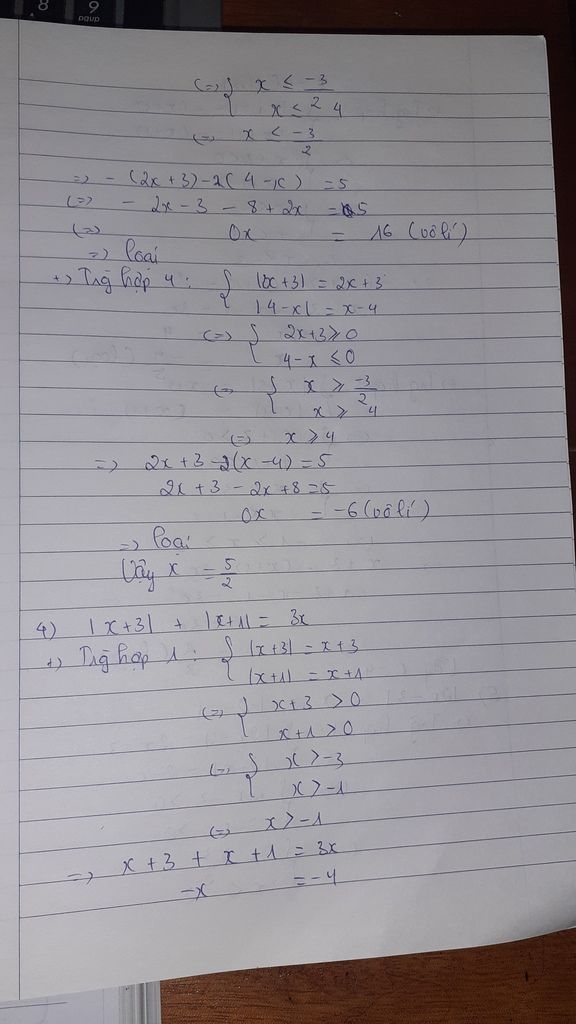 8 9
pgup
(=> { x ≤ -3/2
x ≤ 4
(=> x ≤ -3/2
=> - (2x+3) - 2( 4-x) = 5
(=> - 2x - 3 - 8 + 2x = 5
(=> 0x = 16 (vô lí)
=> loại
+) Trg hợp 4 : { |2x+3| = 2x+3
|4-x| = x-4
(=> { 2x+3 ≥ 0
4-x ≤ 0
(=> { x ≥ -3/2
x ≥ 4
(=> x ≥ 4
=> 2x + 3 - 2(x-4) = 5
2x + 3 - 2x + 8 = 5
0x = -6 (vô lí)
=> loại
Vậy x = 5/2
4) |x+3| + |x+1| = 3x
+) Trg hợp 1 : { |x+3| = x+3
|x+1| = x+1
(=> { x+3 > 0
x+1 > 0
(=> { x > -3
x > -1
(=> x > -1
=> x + 3 + x + 1 = 3x
-x = -4